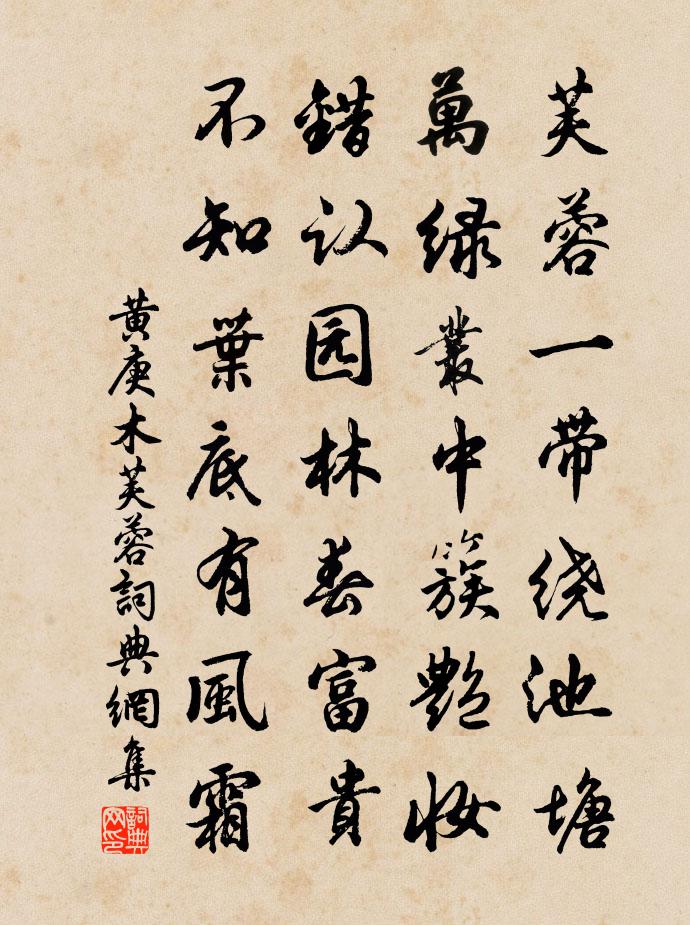 芙蓉一带绕池塘
萬緑叢中簇艷妆
錯认园林春富貴
不知葉底有風霜
黄庚木芙蓉詞典網集
詞典网印